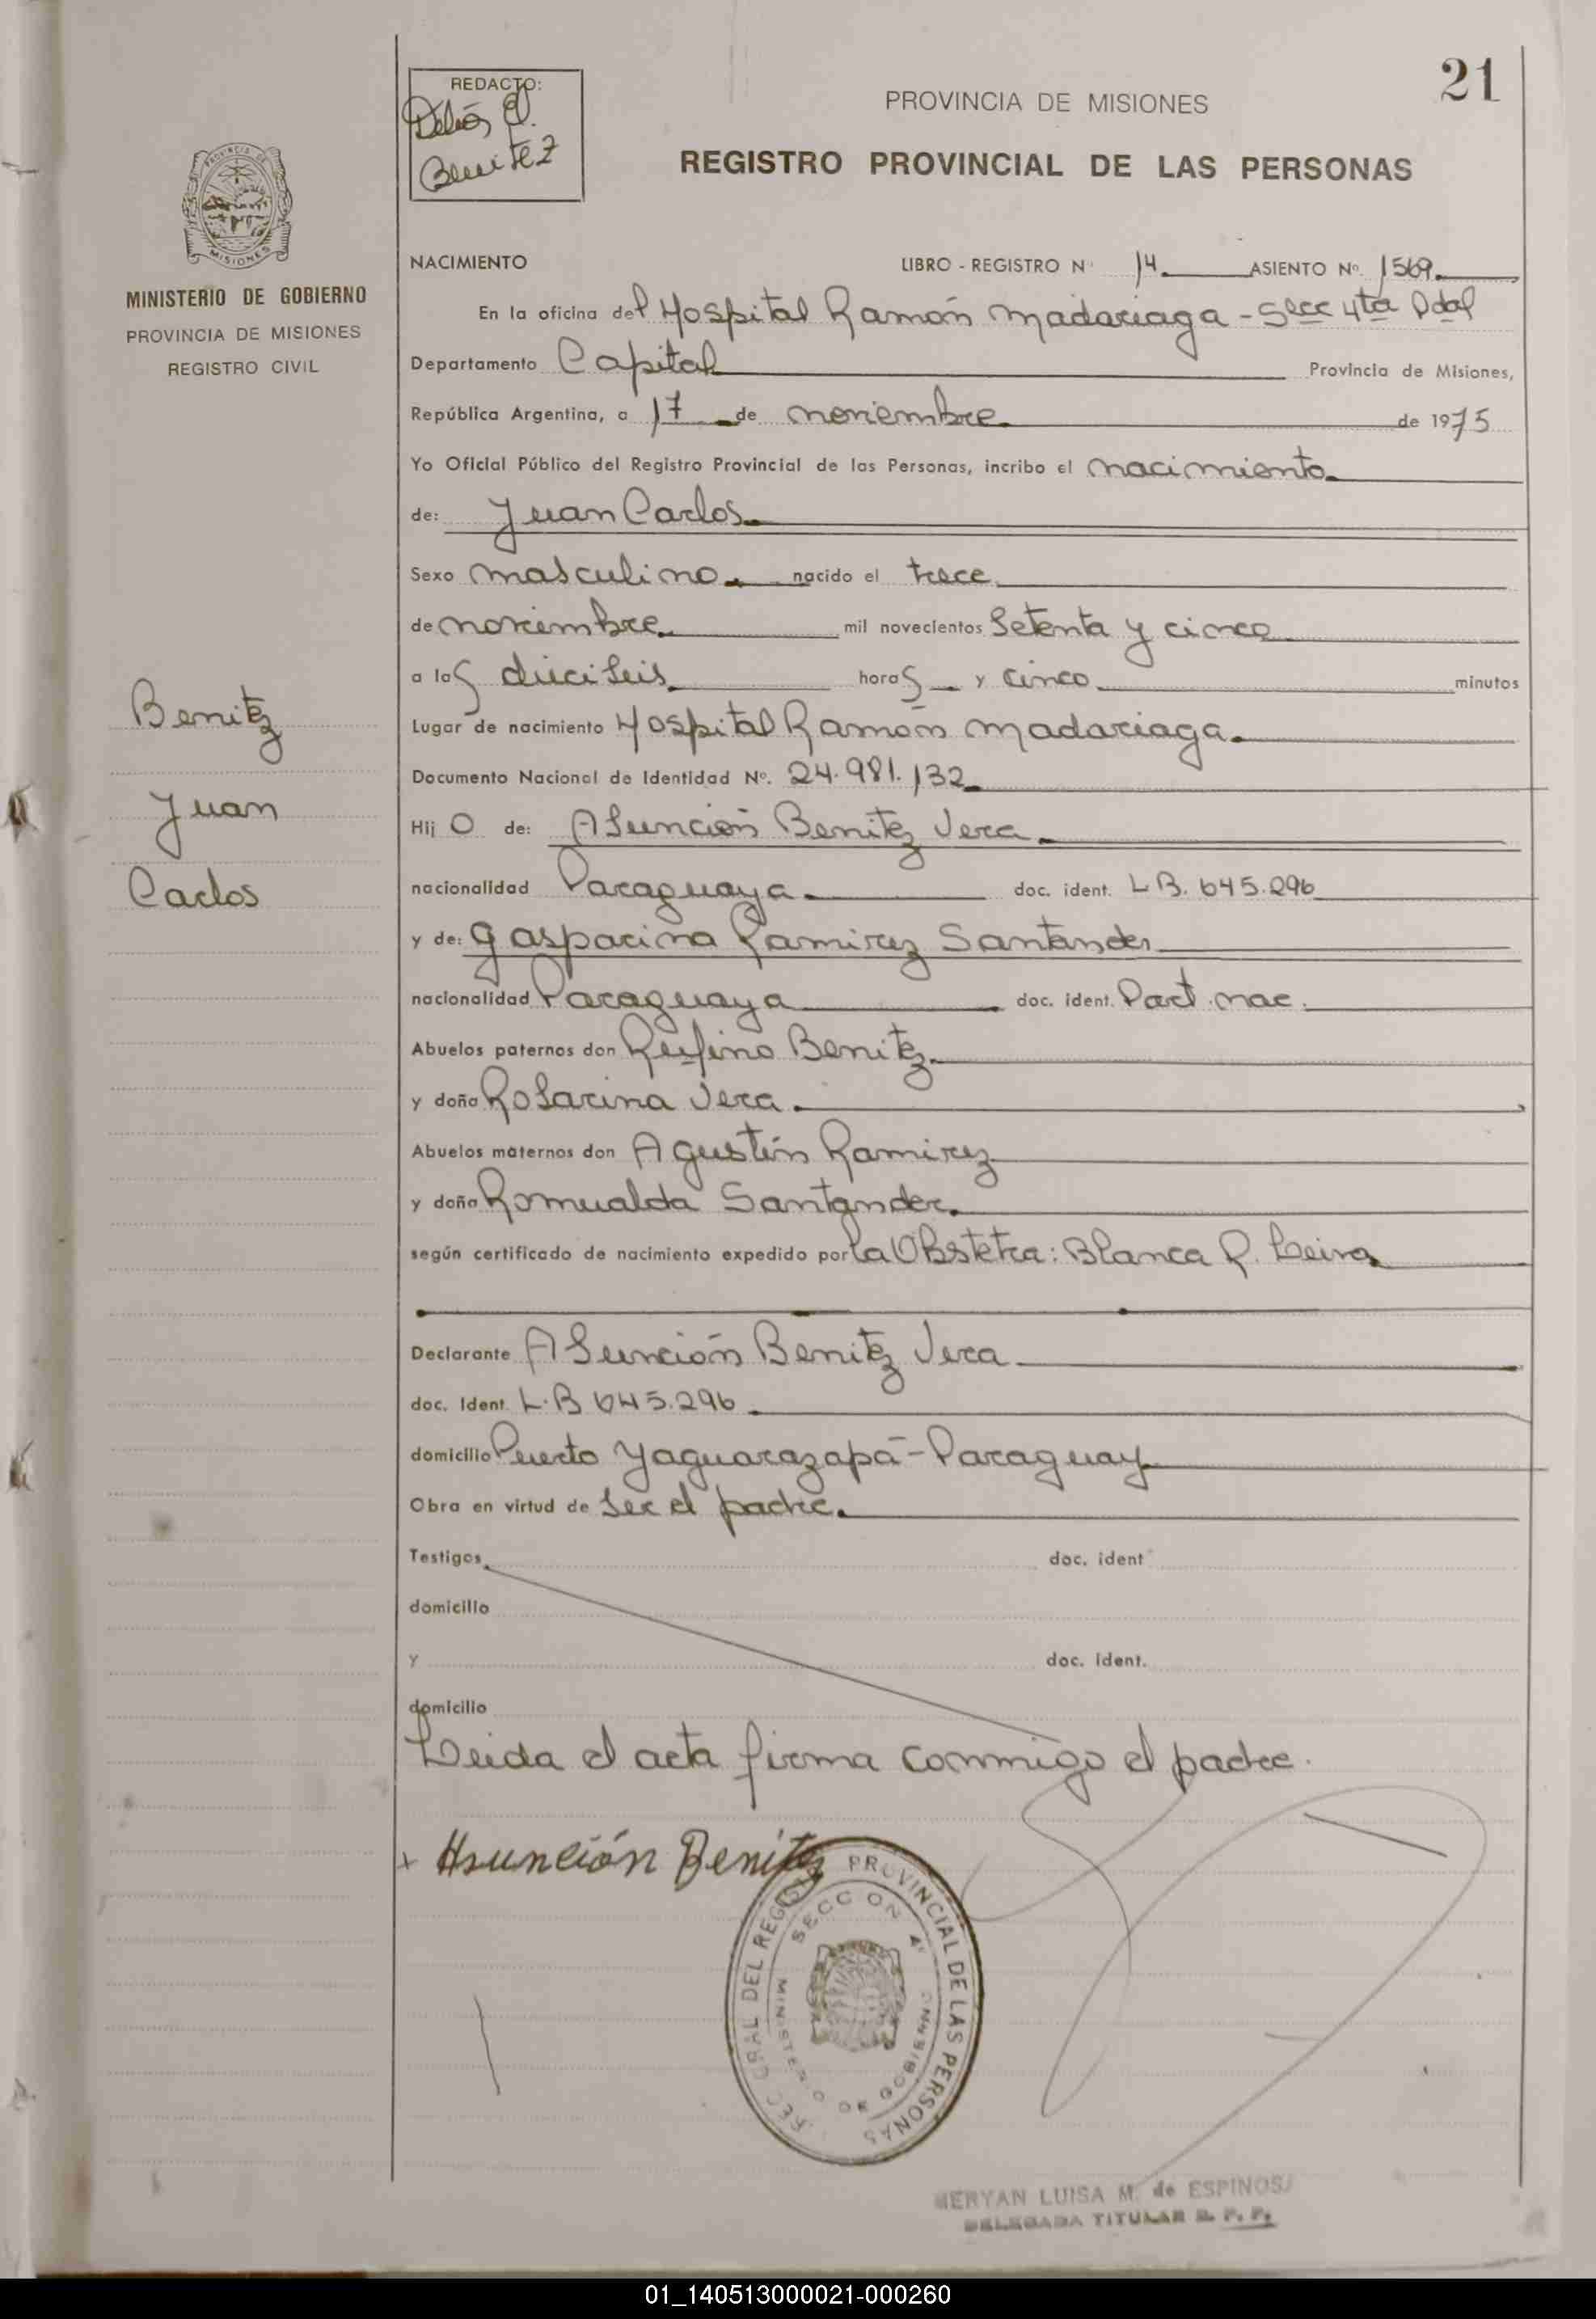 21
REDACTO:
Benitez
PROVINCIA DE MISIONES
REGISTRO PROVINCIAL DE LAS PERSONAS
PROVINCIA DE
MISIONES
MINISTERIO DE GOBIERNO
PROVINCIA DE MISIONES
REGISTRO CIVIL
Benitez
Juan
Carlos
NACIMIENTO LIBRO - REGISTRO Nº 14 ASIENTO Nº. 1569
En la oficina del Hospital Ramón Madariaga - Secc 4ta Pdas
Departamento Capital Provincia de Misiones,
República Argentina, a 17 de noviembre de 1975
Yo Oficial Público del Registro Provincial de las Personas, incribo el nacimiento
de: Juan Carlos
Sexo masculino nacido el trece
de noviembre mil novecientos setenta y cinco
a las dieciseis horas y cinco minutos
Lugar de nacimiento Hospital Ramón Madariaga
Documento Nacional de Identidad Nº. 24.981.132
Hij o de: Asunción Benitez Vera
nacionalidad Paraguaya doc. ident. L B. 645.296
y de: Gasparina Ramirez Santander
nacionalidad Paraguaya doc. ident. Part. nac.
Abuelos paternos don Rufino Benitez
y doña Rosarina Vera
Abuelos maternos don Agustín Ramirez
y doña Romualda Santander
según certificado de nacimiento expedido por la Obstetra: Blanca R. Leiva
Declarante Asunción Benitez Vera
doc. Ident. L.B 645.296
domicilio Puerto Yaguarazapá - Paraguay
Obra en virtud de ser el padre
Testigos doc. ident
domicilio
y doc. ident.
domicilio
Leida el acta firma conmigo el padre.
Asunción Benitez
GRAL DEL REGISTRO PROVINCIAL DE LAS PERSONAS
SECCION 4ª
MINISTERIO DE GOBIERNO
MERYAN LUISA M. de ESPINOSA
DELEGADA TITULAR R. P. P.
01_140513000021-000260